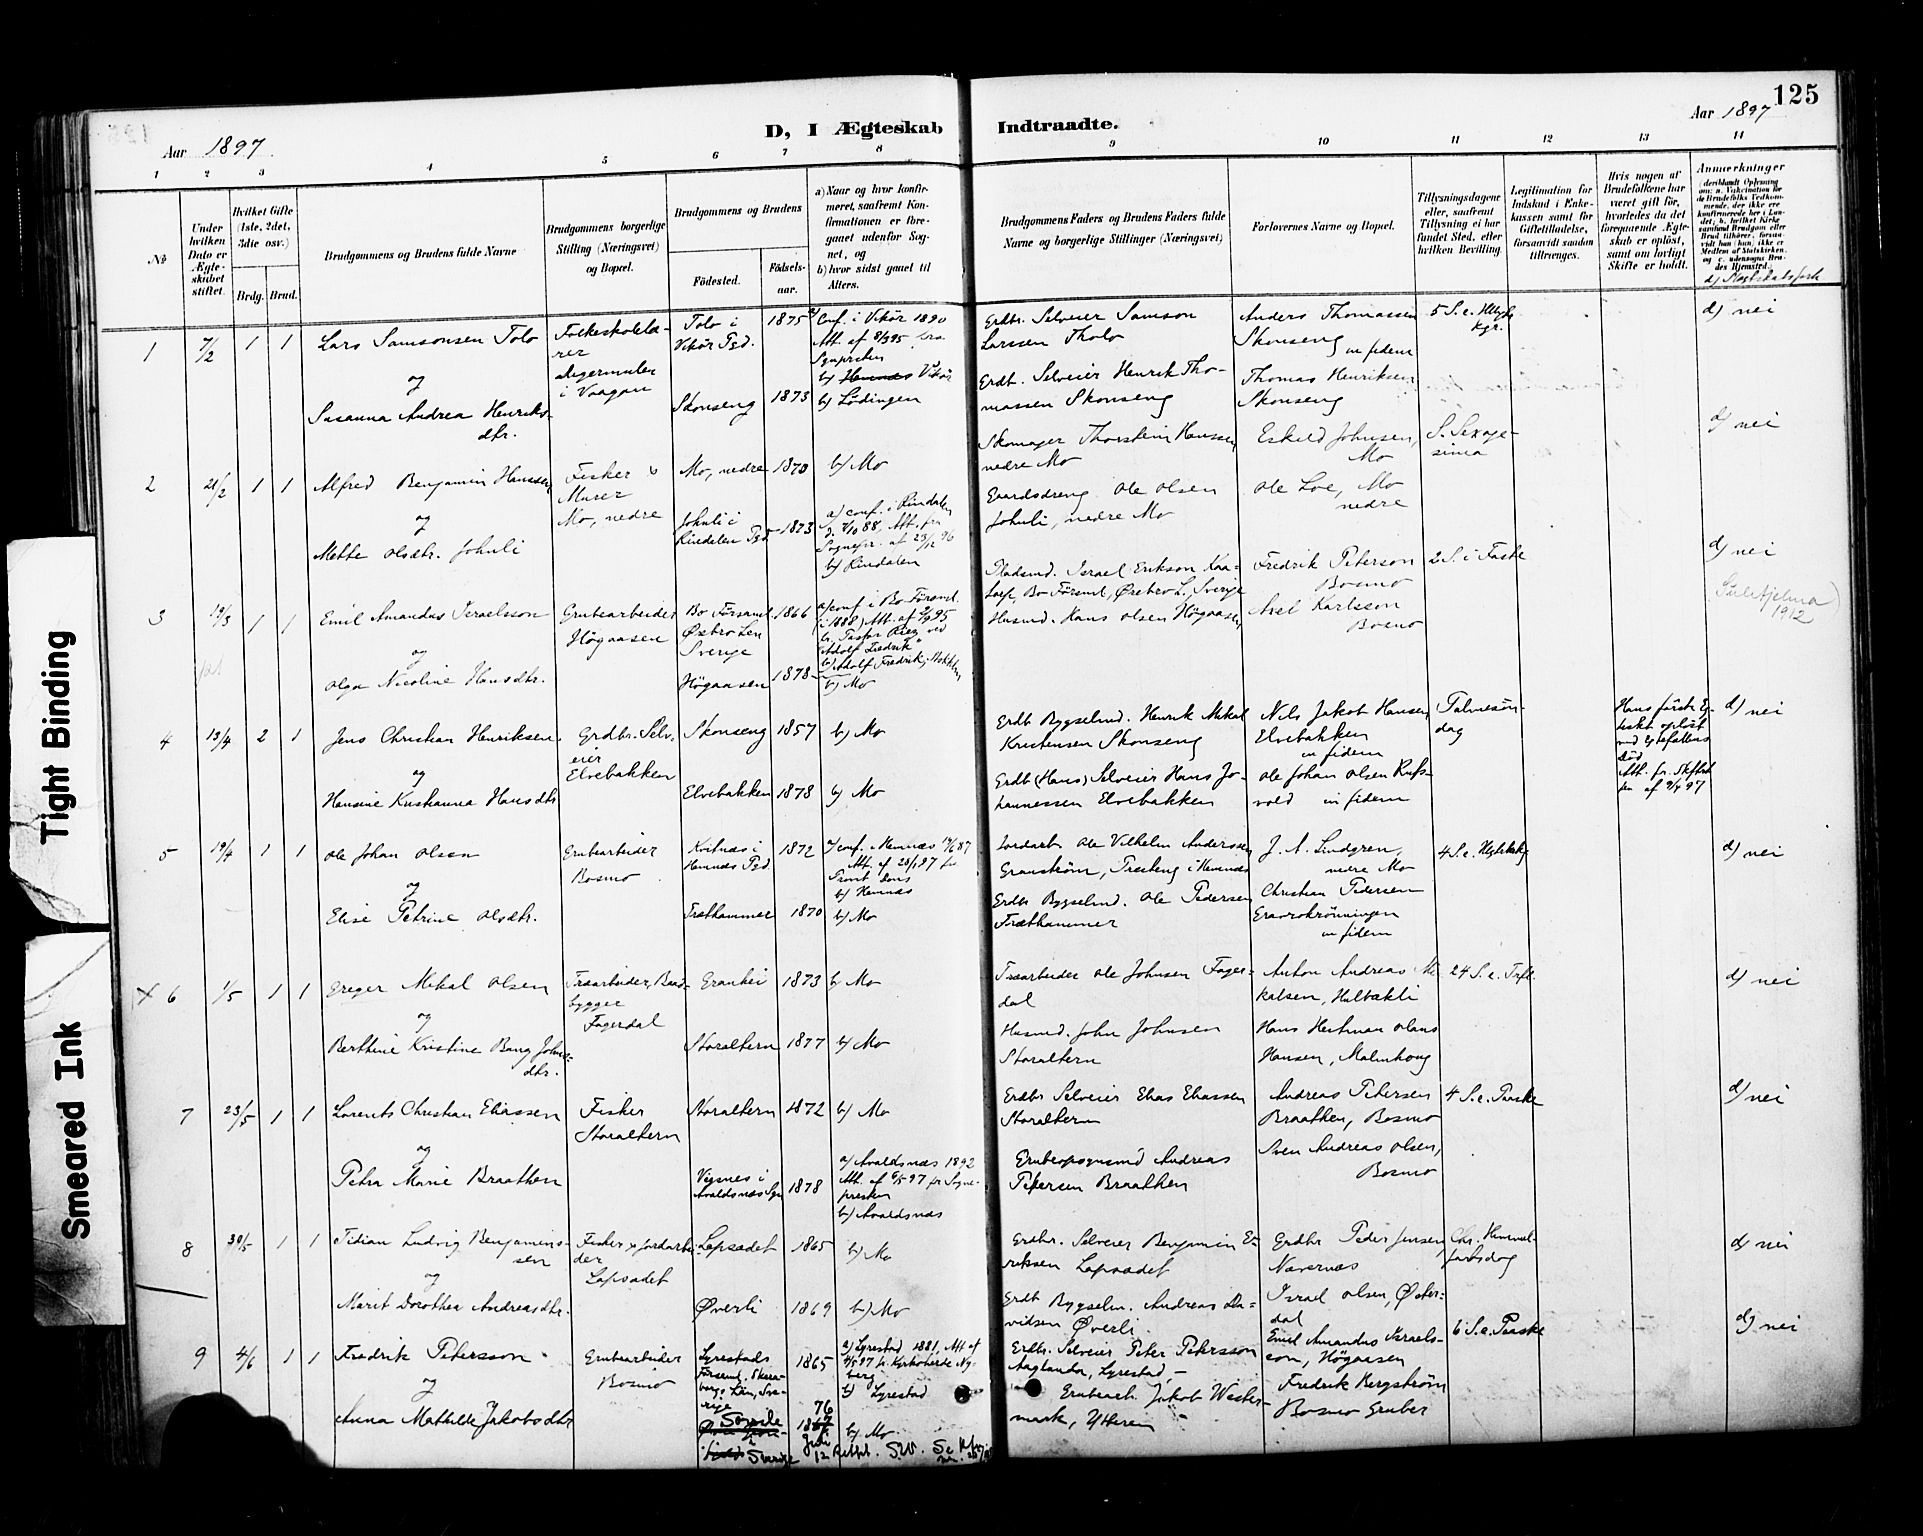 125
Aar 1897.
D, I Ægteskab Indtraadte.
Aar 1897
1 2 3 4 5 6 7 8 9 10 11 12 13 14
No
Under hvilken Dato er Ægteskabet stiftet.
Hvilket Gifte (1ste, 2det, 3die osv.)
Brdg. Brud.
Brudgommens og Brudens fulde Navne
Brudgommens borgerlige Stilling (Næringsvei) og Bopæl.
Brudgommens og Brudens
Födested.
Födselsaar.
a) Naar og hvor konfirmeret, saafremt Konfirmationen er foregaaet udenfor Sognet, og
b) hvor sidst gaaet til Alters.
Brudgommens Faders og Brudens Faders fulde Navne og borgerlige Stillinger (Næringsvei)
Forlovernes Navne og Bopæl.
Tillysningsdagene eller, saafremt Tillysning ei har fundet Sted, efter hvilken Bevilling
Legitimation for Indskud i Enkekassen samt for Giftetilladelse, forsaavidt saadan tiltrænges.
Hvis nogen af Brudefolkene har været gift för, hvorledes da det foregaaende Ægteskab er oplöst, samt om lovligt Skifte er holdt.
Anmærkninger
(deriblandt Oplysning om: a. Vakcination for de Brudefolks Vedkommende, der ikke ere konfirmerede her i Landet; b. hvilket Kirkesamfund Brudgom eller Brud tilhörer, forsaavidt han (hun) ikke er Medlem af Statskirken, og c. udensogns Brudes Hjemsted.)
d) Slægtskabsforh
1 7/2 1 1 Lars Samsonsen Tolo
og
Susanna Andrea Henriksdtr.
Folkeskolelærer
Digermulen
i Vaagan
Tolo i
Vikör Pgd.
1875
Skonseng 1873
a) Conf. i Vikör 1890
Att. af 8/3 95 fra
Sognepresten
b) Hemnes Vikör
b) Lödingen
Grdbr. Selveier Samson
Larssen Tholo
Grdb. Selveier Henrik Thomassen Skonseng
Anders Thomassen
Skonseng in fidem
Thomas Henriksen
Skonseng
5 S. e. Hellig
kgr.
d) nei
2 21/2 1 1 Alfred Benjamin Hanssen
og
Mette Olsdtr. Johnli
Fisker &
Murer
Mo, nedre
Mo, nedre 1870 b) Mo
Johnli i
Rindalen Pgd 1873
a) conf. i Rindalen
d. 7/10 88, Att. fra
Sognepr. af 23/12 96
b) Rindalen
Skomager Thorstein Hanssen
nedre Mo
Gaardsdreng Ole Olsen
Johnli, nedre Mo
Eskild Johnsen,
Mo
Ole Loe, Mo
nedre
S. Sexagesima
d) nei
3 19/3 1 1 Emil Amandus Israelsson
og
Olga Nicoline Hansdtr.
Grubearbeider
Högaasen
Bo Församl.
Örebro Len
Sverige
1866
Högaasen 1878
a) conf. i Bo Församl.
b) Adolf Fredrik, Stokholm
b) Mo
Pladsmd. Israel Erikson
Bo Församl, Örebro L., Sverige
Husmd. Hans Olsen Högaasen
Fredrik Peterson
Bosmo
Axel Karlsson
Bosmo
2 S. i Faste
d) nei
Sulitjelma
1912
4 13/4 2 1 Jens Christian Henriksen
og
Hansine Kristianna Hansdtr
Grdbr. Selveier
Elvebakken
Skonseng 1857 b) Mo
Elvebakken 1878 b) Mo
Grdb. Bygselmd. Henrik Mikal
Kristensen Skonseng
Grdb (Hans) Selveier Hans Johannessen Elvebakken
Nils Jakob Hansen
Elvebakken
in fidem
Ole Johan Olsen Rufsvold in fidem
Palmesöndag
Hans förste Egteskb. oplöst
ved Egtefellens
Död
Att. fr. Skifteretten af 9/4 97
d) nei
5 19/4 1 1 Ole Johan Olsen
og
Elise Petrine Olsdtr.
Grubearbeider
Bosmo
Kvitnæs i
Hemnæs Pgd.
1872
Fræthammer 1870
a) conf. Hemnæs 87
Att. af 28/1 97 fr
Provt Dons
b) Hemnæs
b) Mo
Jordarb. Ole Vilhelm Anderssen
Granström, Presteng i Hemnæs
Grdb Bygselmd. Ole Pedersen
Fræthammer
J. A. Lindgren,
nedre Mo
Christian Pedersen
in fidem
4 S. e. Hgtrkg
d) nei
X 6 1/5 1 1 Greger Mikal Olsen
og
Berthine Kristine Bang Johnsdtr.
Træarbeider, Baadbygger
Fagerdal
Granhei 1873 b) Mo
Storaltern 1877 b) Mo
Træarbeider Ole Johnsen Fagerdal
Husmd. John Johnsen
Storaltern
Anton Andreas Mikalsen, Hulbækli
Hans Hertman Olaus
Hansen, Malmhoug
24 S. e. Trft.
d) nei
7 23/5 1 1 Lorents Christian Eliassen
og
Petra Marie Braathen
Fisker
Storaltern
Storaltern 1872 b) Mo
Vigsnes i
Avaldsnæs Sgn 1878
a) Avaldsnæs 1892
Att. af 6/5 97 fr Sognepresten
b) Avaldsnæs
Grdbr Selveier Elias Eliassen
Storaltern
Grubeopsynsmd Andreas
Petersen Braathen
Andreas Petersen
Braathen, Bosmo
Sven Andreas Olsen,
Bosmo
4 S. e. Paaske
d) nei
8 30/5 1 1 Tidian Ludvig Benjaminssen
og
Marit Dorothea Andreasdtr.
Fisker & Jordarbeider
Lapsadet
Lapsadet 1865 b) Mo
Överli 1869 b) Mo
Grdbr. Selveier Benjamin Eriksen Lapsadet
Grdb Bygselm. Andreas Davidsen Överli
Grdbr Peder Jensen
Nævernæs
Israel Olsen, Österdal
Chr. Himmelfartsdag
d) nei
9 4/6 1 1 Fredrik Petersson
og
Anna Mathilde Jakobsdtr
Grubearbeider
Bosmo
Lyrestads
Församl. Skaraborgs Län, Sverige
1865
Sverige
76
1867
Juli
12
a) Lyrestad 1881, Att af
4/5 97 fr. Kyrkoherde Nyberg
b) Lyrestad
b) Mo
Grdbr. Selveier Peter Petersson
Aaglanda, Lyrestad,
Grubearb. Jakob Westermark, Ytteren
Emil Amandus Israelsson, Högaasen
Fredrik Bergström
Bosmo Gruber
6 S. e. Paaske
d) nei
Tight Binding
Smeared Ink